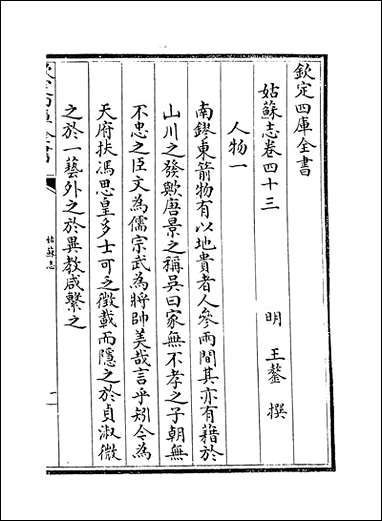 欽定四庫全書
姑蘇志卷四十三
明 王鏊 撰
人物一
南鏐東箭物有以地貴者人參兩間其亦有藉於
山川之發歟唐景之稱吳曰家無不孝之子朝無
不忠之臣文為儒宗武為將帥美哉言乎矧今為
天府扶馮思皇多士可之徴載而隱之於貞淑微
之於一藝外之於異教咸繫之
姑蘇志